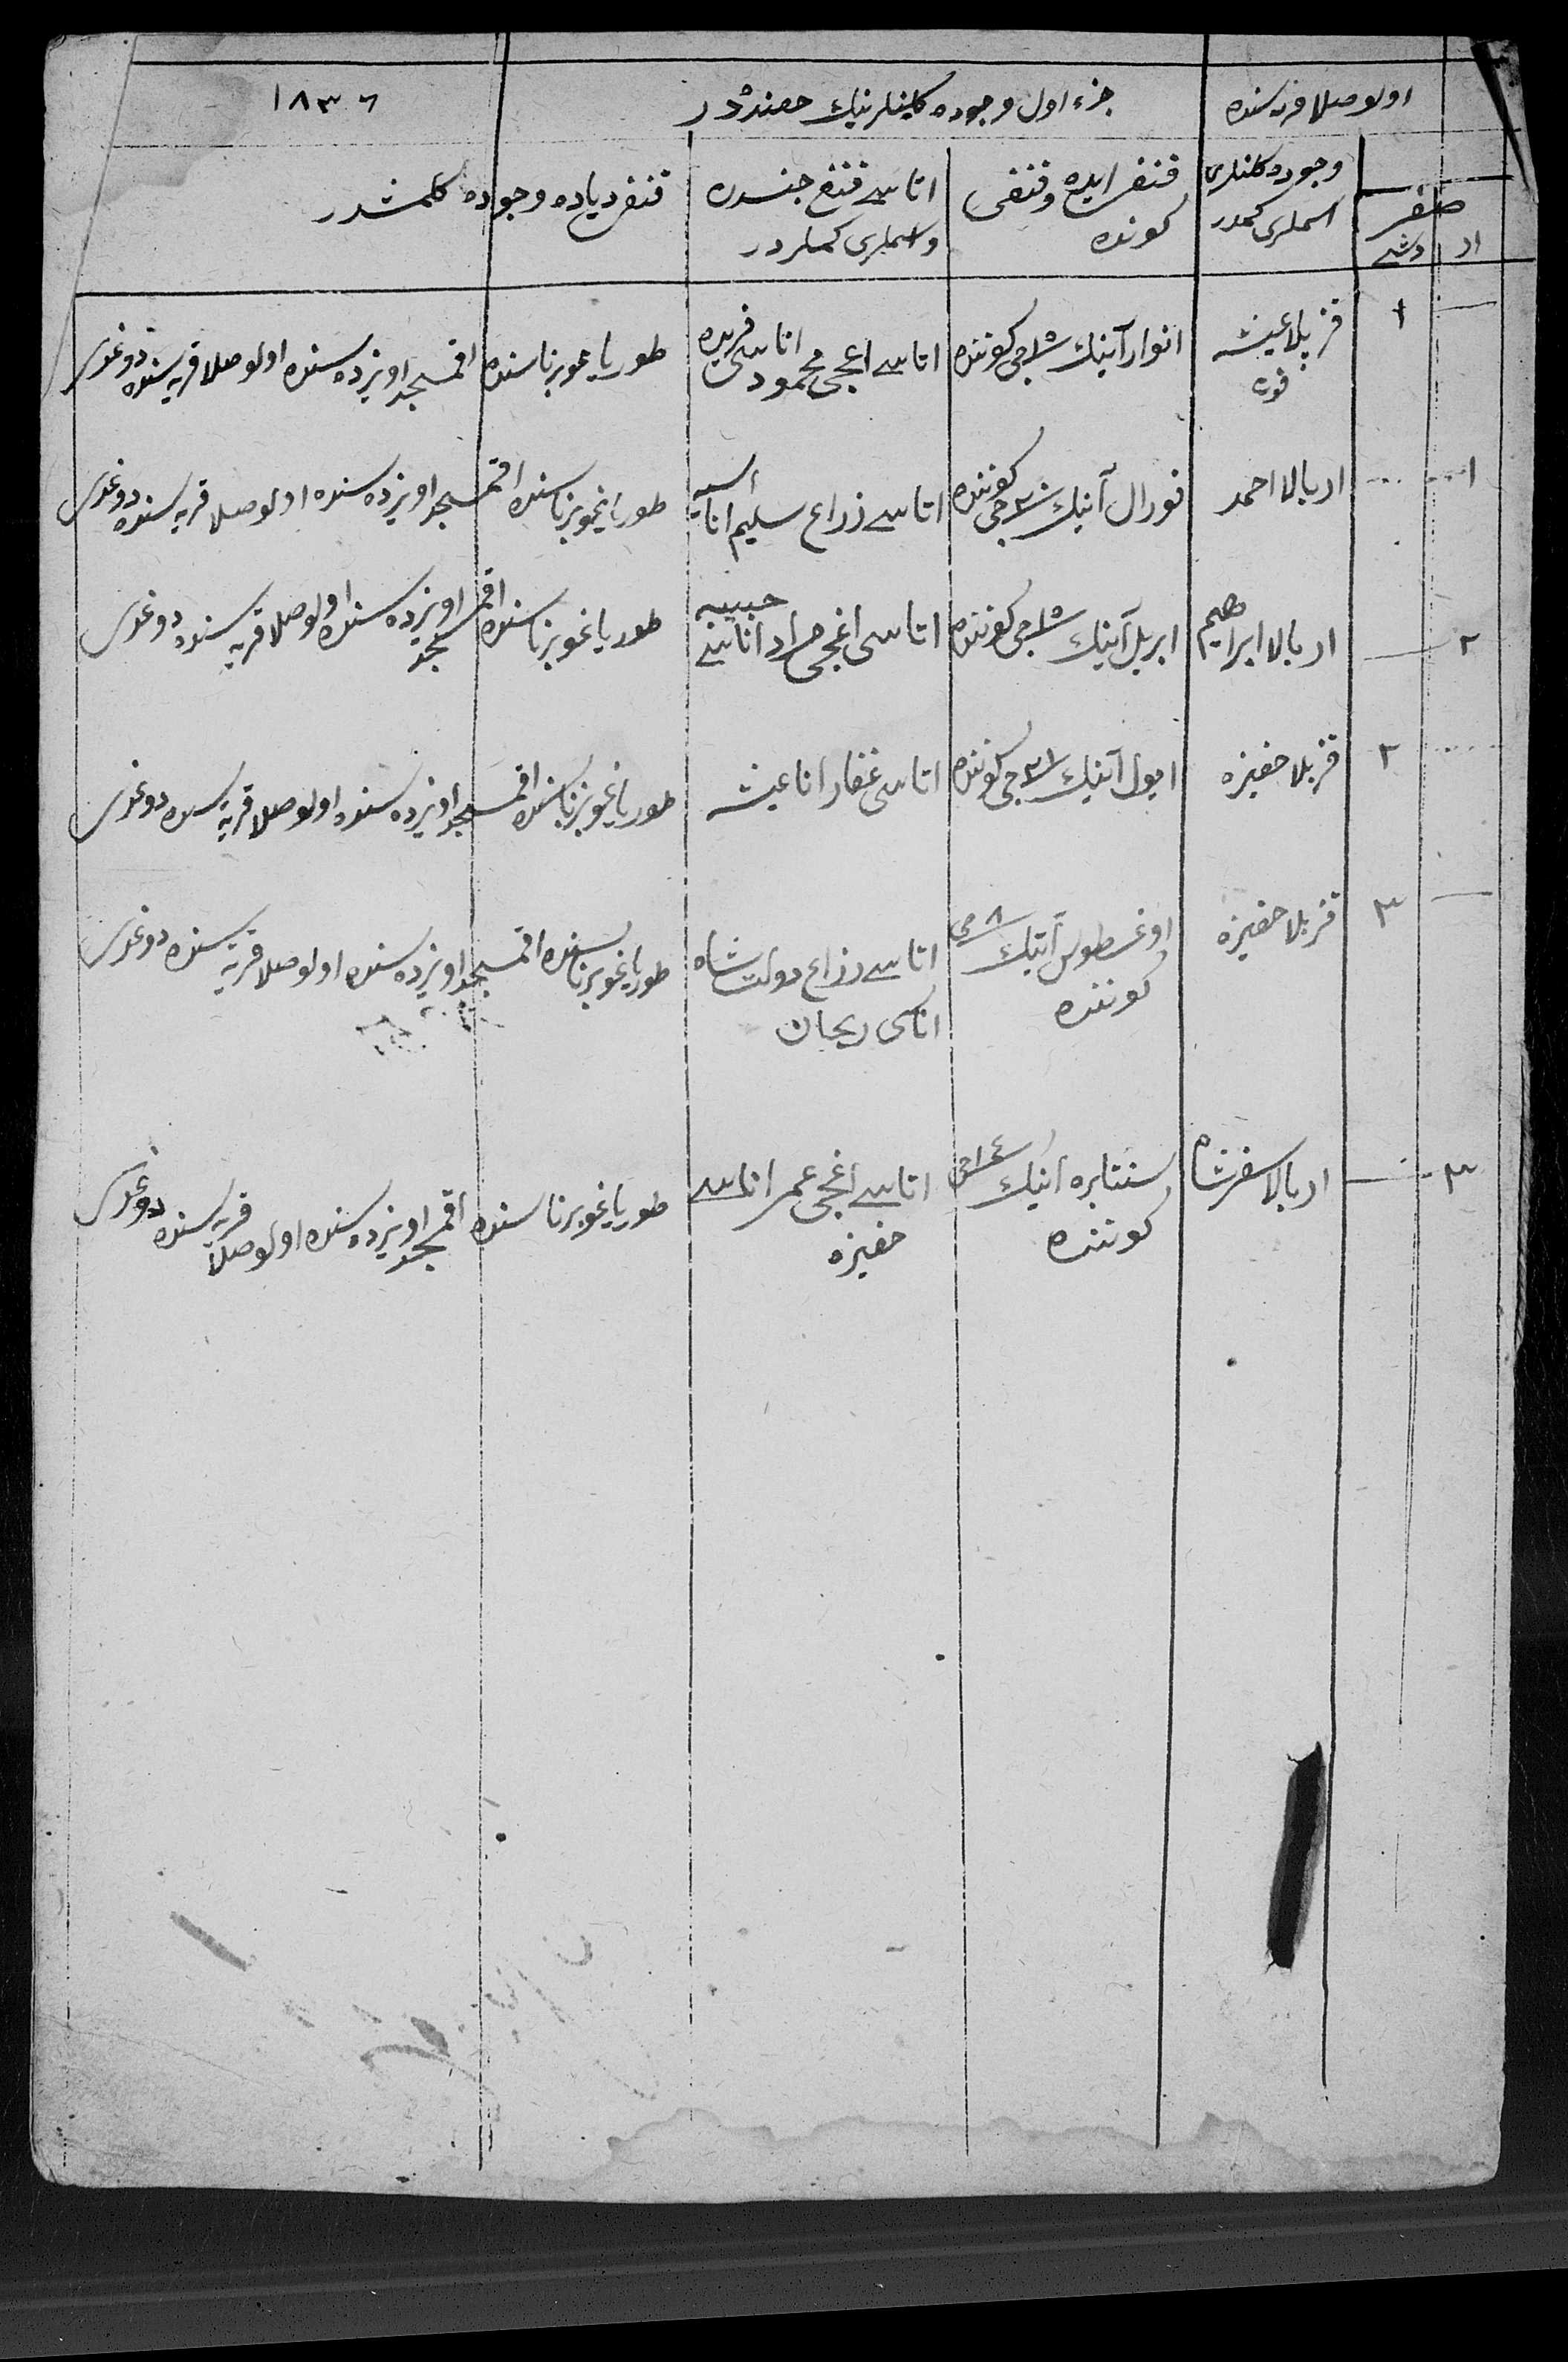 اولوصلا قریه سنده
جزء اول وجوده کلینلرینك حصنده در
١٨٣٦
وجوده کلنلری
اسملری کمدر
قنغی ایده وقنغی
کونده
اتاسی قنغی جنسدن
واسملری کملردر
قنغی دیاده وجوده کلمشدر
ار
دشی
١
قز بلا عیشه
انوار آینك ١٥جی کوننده
اتاسی اغجی محمود اناسی فریده
طوریا غوبرناسنده اقمسجد اویزده سنده اولوصلا قریه سنده دوغدی
١
ار بالا احمد
فورال آینك ٢٠جی کوننده
اتاسی زراع سلیم
طوریا غوبرناسنده اقمسجد اویزده سنده اولوصلا قریه سنده دوغدی
٢
ار بالا ابراهیم
ابریل آینك ١٥جی کوننده
اتاسی اغجی مراد اناسی حبیبه
طوریا غوبرناسنده اقمسجد اویزده سنده اولوصلا قریه سنده دوغدی
٢
قز بلا حفیزه
ایول آینك ٢١جی کوننده
اتاسی غفار انا عیشه
طوریا غوبرناسنده اقمسجد اویزده سنده اولوصلا قریه سنده دوغدی
٣
قز بلا حفیزه
اوغسطوس آینك ٨جی
کوننده
اتاسی زراع دولتشاه
اناسی ریحان
طوریا غوبرناسنده اقمسجد اویزده سنده اولوصلا قریه سنده دوغدی
٣
ار بالا سفرشاه
سنتابره آینك ١٤جی
کوننده
اتاسی اغجی عمر اناسی
حفیزه
طوریا غوبرناسنده اقمسجد اویزده سنده اولوصلا قریه سنده دوغدی